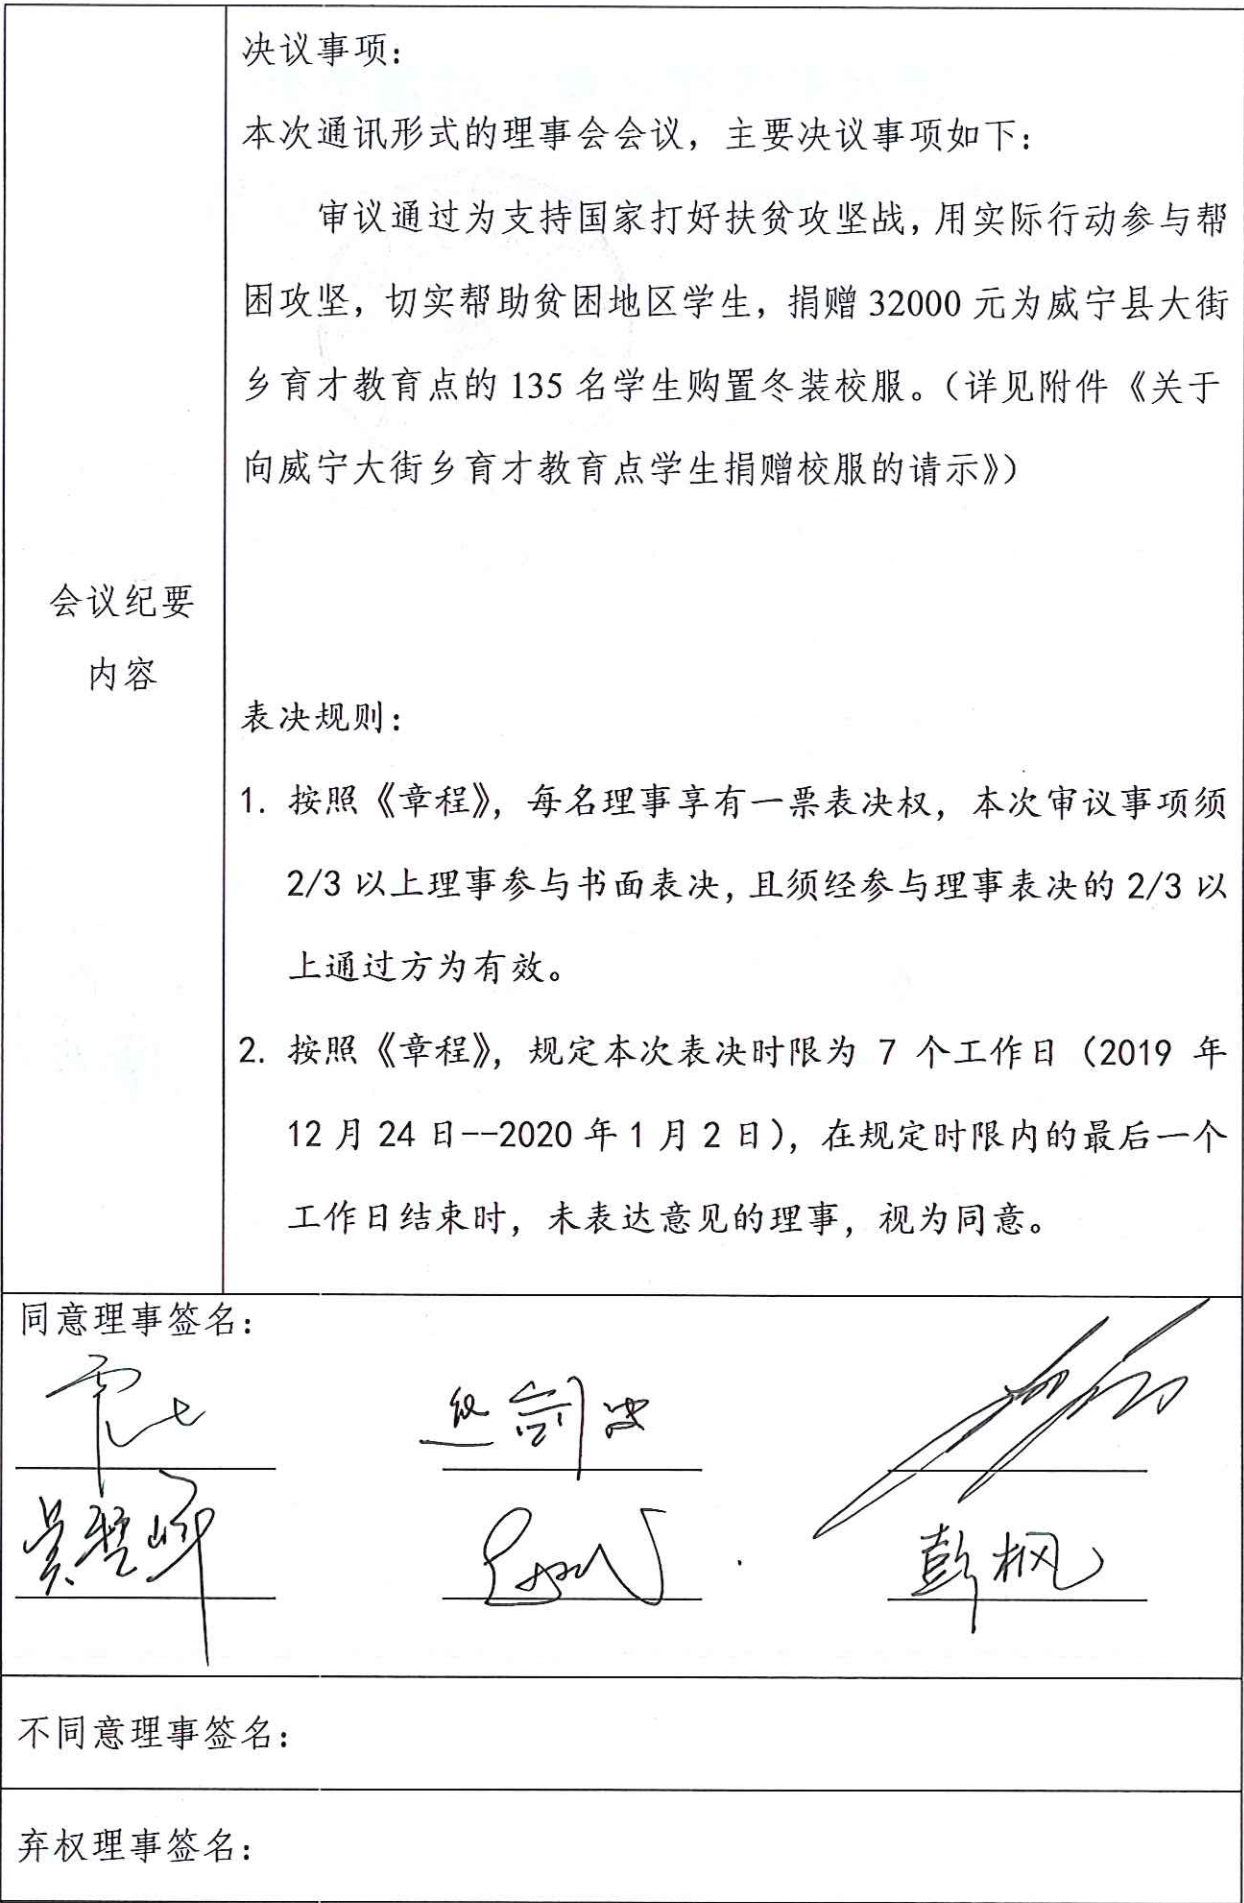 决议事项：
本次通讯形式的理事会会议，主要决议事项如下：
审议通过为支持国家打好扶贫攻坚战，用实际行动参与帮
困攻坚，切实帮助贫困地区学生，捐赠 32000 元为威宁县大街
乡育才教育点的 135 名学生购置冬装校服。（详见附件《关于
向威宁大街乡育才教育点学生捐赠校服的请示》）
会议纪要
内容
表决规则：
1. 按照《章程》，每名理事享有一票表决权，本次审议事项须
2/3 以上理事参与书面表决，且须经参与理事表决的 2/3 以
上通过方为有效。
2. 按照《章程》，规定本次表决时限为 7 个工作日（2019 年
12 月 24 日--2020 年 1 月 2 日），在规定时限内的最后一个
工作日结束时，未表达意见的理事，视为同意。
同意理事签名：
彭枫
不同意理事签名：
弃权理事签名：